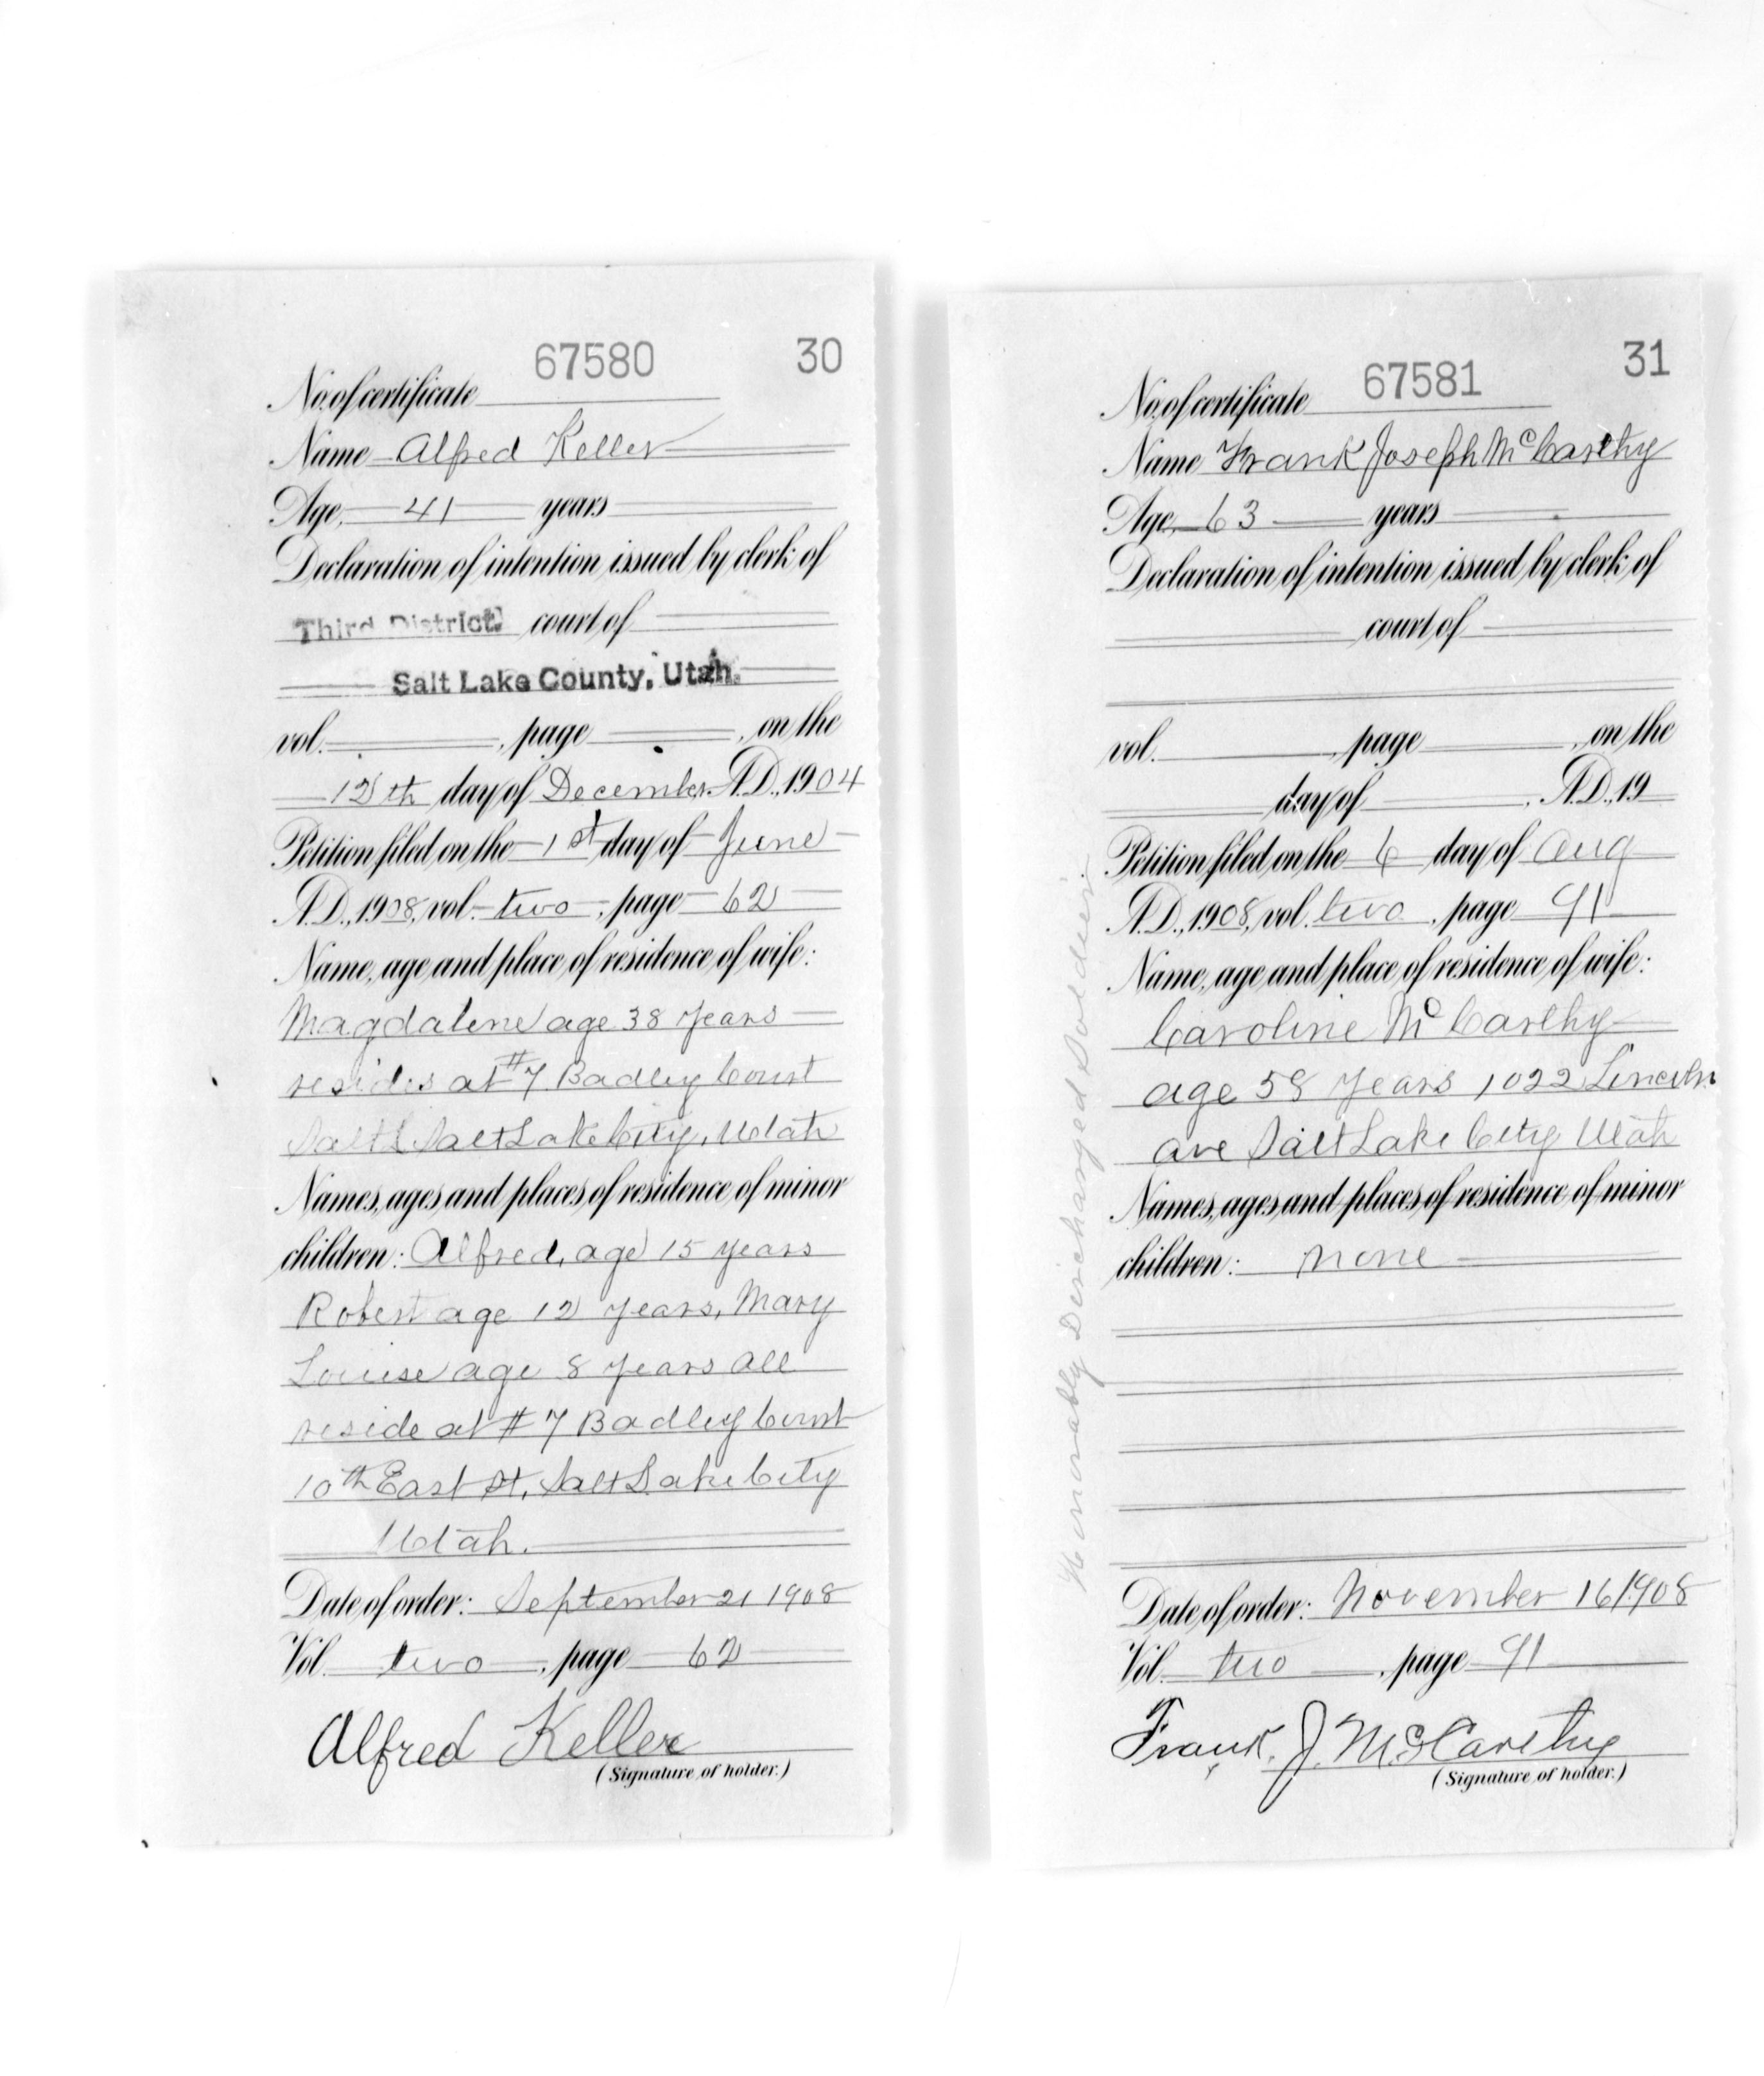 67580 30
No. of certificate
Name Alfred Keller
Age, 41 years
Declaration of intention issued by clerk of
Third District court of
Salt Lake County, Utah.
vol. , page , on the
12th day of December A.D., 1904
Petition filed on the 1st day of June
A.D., 1908, vol. two, page 62
Name, age and place of residence of wife:
Magdalene age 38 years
resides at #7 Badley Court
Salt L Salt Lake City, Utah
Names, ages and places of residence of minor
children: Alfred, age 15 years
Robert age 12 years, Mary
Louise age 8 years all
reside at #7 Badley Court
10th East St, Salt Lake City
Utah.
Date of order: September 21 1908
Vol. two, page 62
Alfred Keller
(Signature of holder.)
67581 31
No. of certificate
Name Frank Joseph McCarthy
Age, 63 years
Declaration of intention issued by clerk of
court of
vol. , page , on the
day of , A.D., 19
Petition filed on the 6 day of Aug
A.D., 1908, vol. two, page 91
Name, age and place of residence of wife:
Caroline McCarthy
age 58 years 1022 Lincoln
ave Salt Lake City Utah
Names, ages and places of residence of minor
children: none
Date of order: November 16 1908
Vol. two, page 91
Frank. J. McCarthy
(Signature of holder.)
Honorably Discharged Soldier.